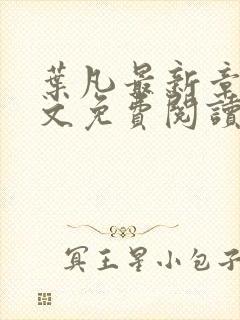 葉凡最新章
文免費閱讀
冥王星小包子